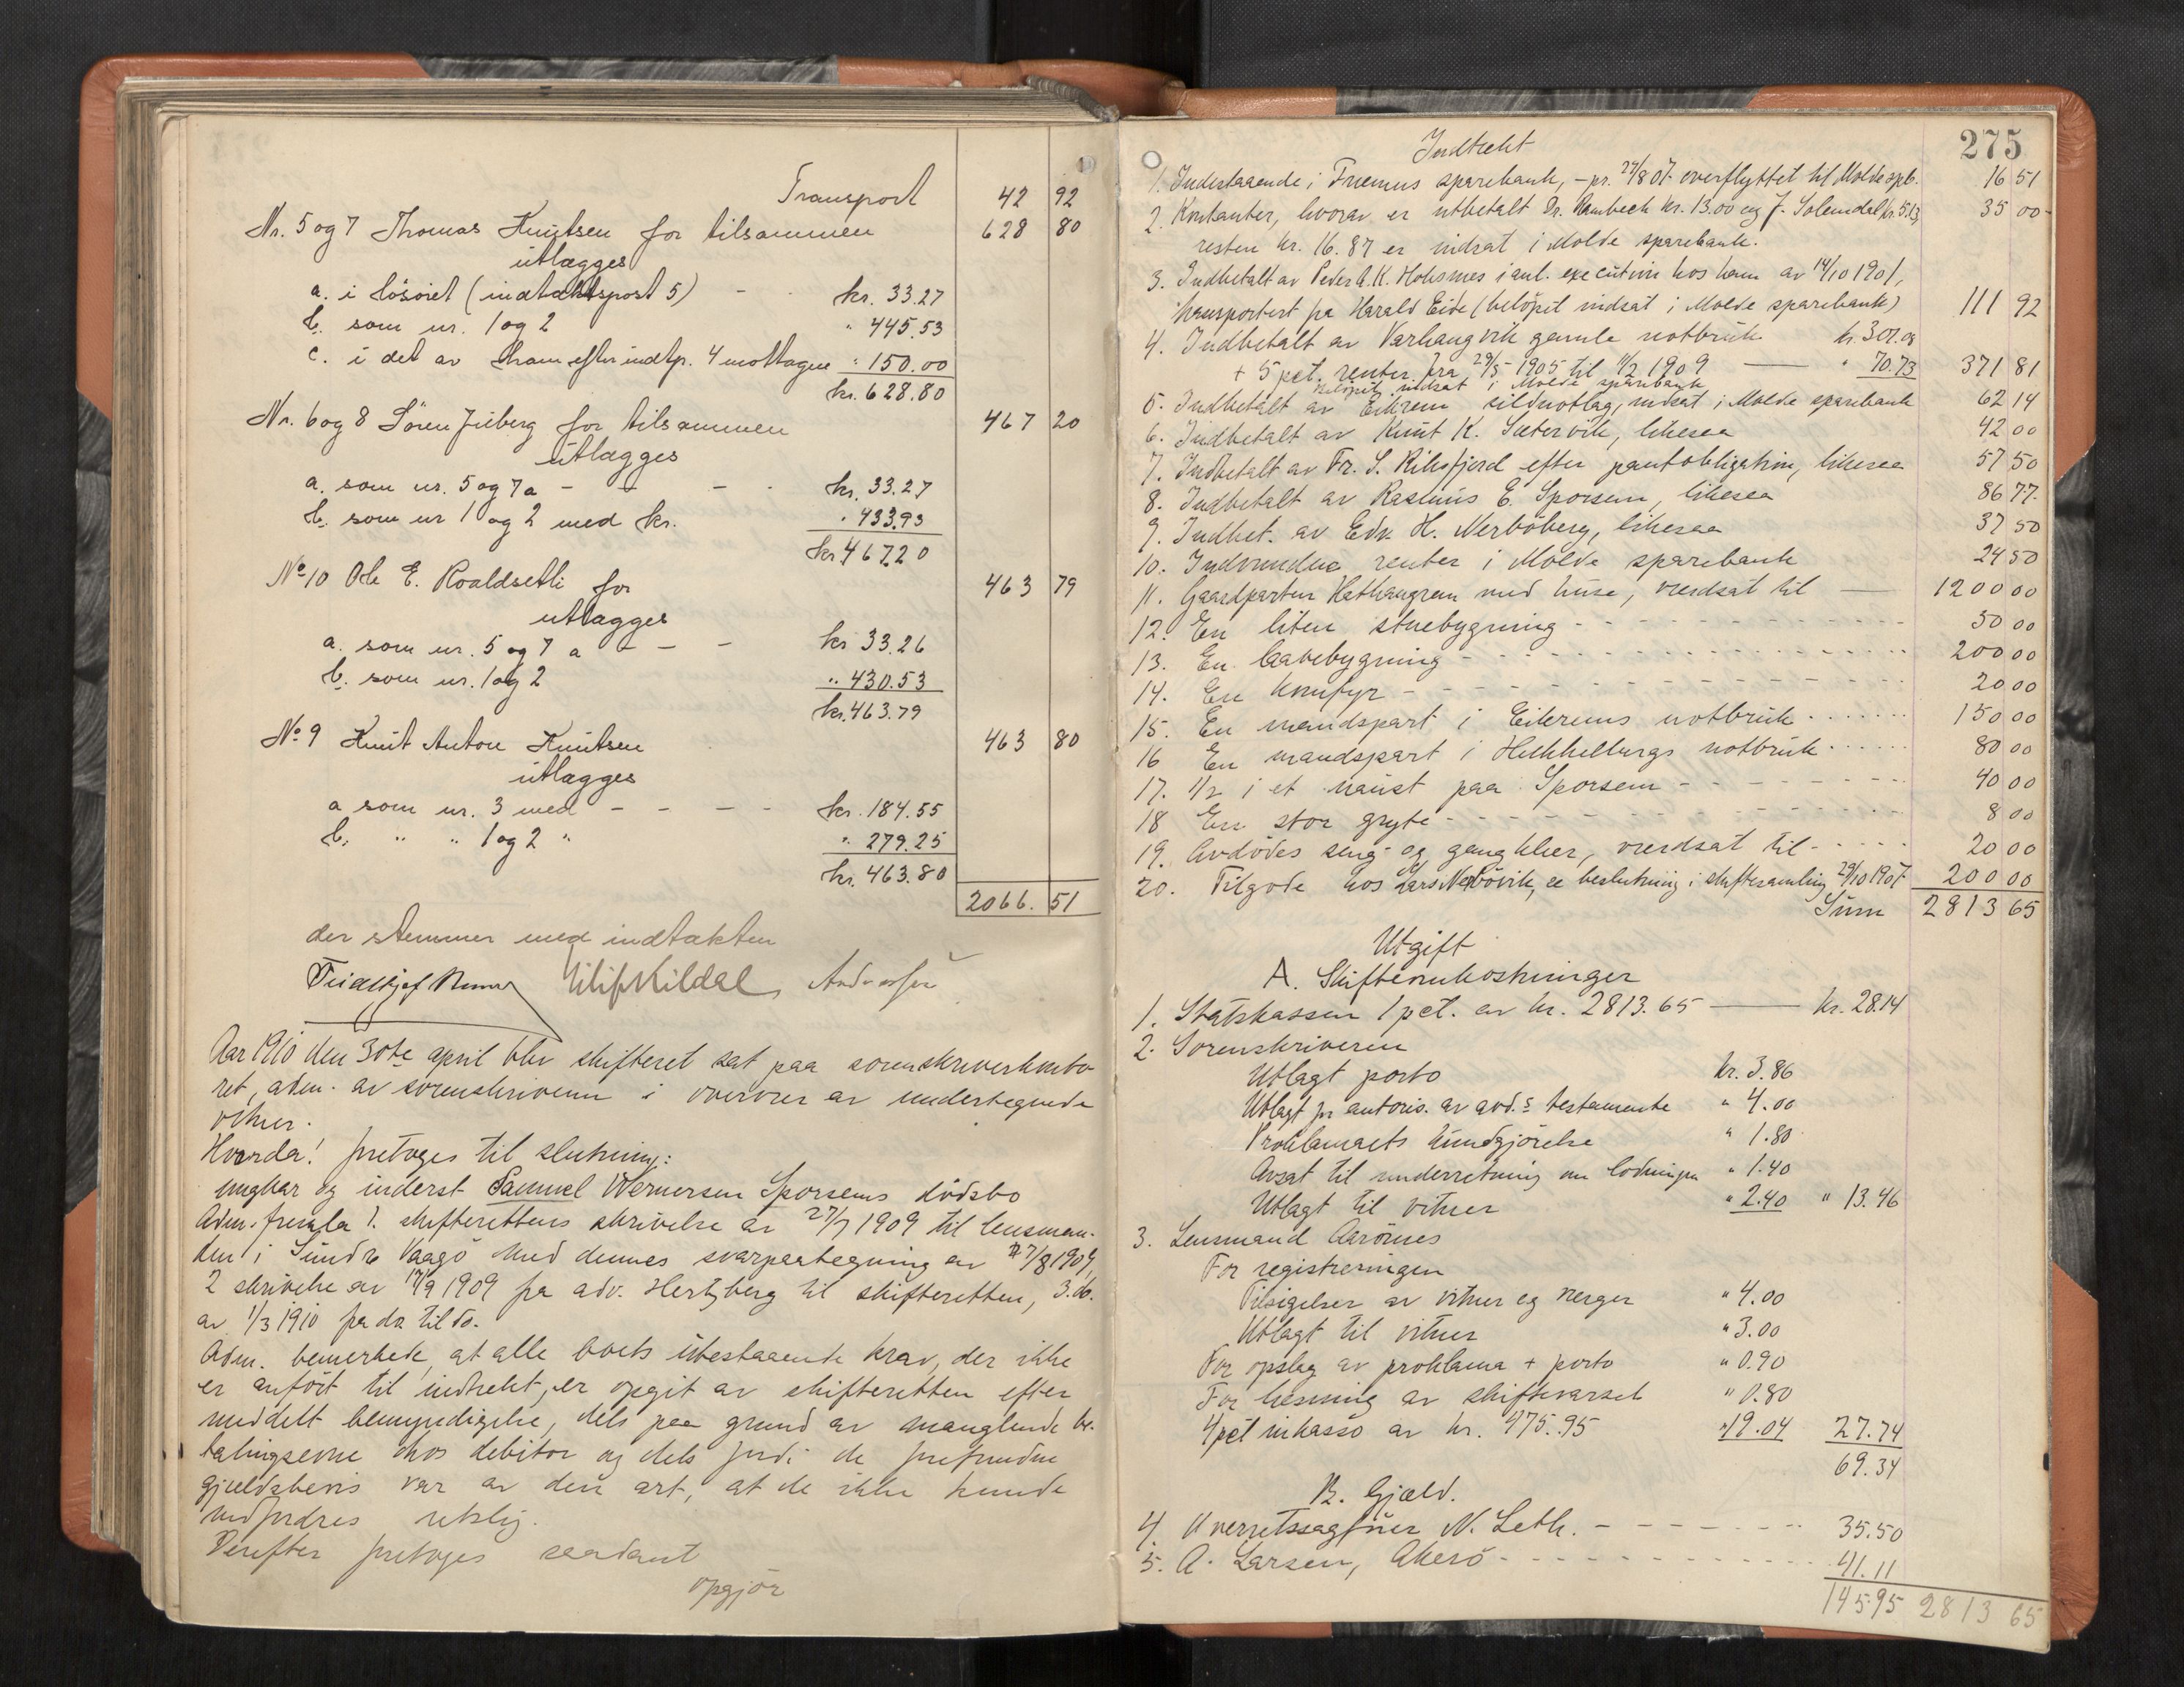 Transport 42 92
Nr. 5 og 7 Thomas Knutsen for tilsammen 628 80
utlægges
a. i lösöret (indtaktspost 5) - - kr. 33.27
b. som nr. 1 og 2 " 445.53
c. i det av ham efter indtp. 4 mottagne " 150.00
kr. 628.80
Nr. 6 og 8 Sören Julberg for tilsammen 467 20
utlægges
a. som nr. 5 og 7 a - - - kr. 33.27
b. som nr 1 og 2 med kr. " 433.93
kr 467.20
No 10 Ole E. Roaldsetli for 463 79
utlægges
a. som nr. 5 og 7 a - - - kr 33.26
b. som nr. 1 og 2 " 430.53
kr. 463.79
No 9 Knut Anton Knutsen 463 80
utlægges
a som nr. 3 med - - - - kr. 184.55
b. " " 1 og 2 " " 279.25
kr. 463.80
2066. 51
der stemmer med indtakten
Aar 1910 den 30te april blev skifteret sat paa sorenskriverkonto-
ret, adm. av sorenskriveren i overvær av undertegnede
vitner.
Hvorda! foretoges til slutning:
ungkar og inderst Samuel Wernersen Sporsems dödsbo
Adm. fremla 1. skifterettens skrivelse av 27/7 1909 til lensman-
den i Sundre Vaagö med dennes svarpaategning av 7/8 1909,
2 skrivelse av 17/9 1909 fra adv. Hertzberg til skifteretten, 3. do.
av 1/3 1910 fra do til do.
Adm. bemerkede, at alle boets utestaaende krav, der ikke
er anfört til indtekt, er opgit av skifteretten efter
meddelt bemyndigelse, dels paa grund av manglende be-
talingsevne hos debitor og dels fordi de forefundne
gjældsbevis var av den art, at de ikke kunde
indfordres retslig.
Derefter foretoges saadant
opgjör
275
Indtekt
1. Indestaaende i Frænens sparebank, - pr. 27/8 07 overflyttet til Molde spb. 16 51
2. Kontanter, hvorav er utbetalt Dr. Rambech kr. 13.00 og J. Solemdal kr. 5.13, 35 00
resten kr. 16.87 er indsat i Molde sparebank.
3. Indbetalt av Peder A. K. Hohsnes i anl. execution hos ham av 14/10 1901,
transportert fra Harald Eide (belöpet indsat i Molde sparebank) 111 92
4. Indbetalt av Varhaugvik gamle notbruk kr. 301.08
+ 5 pct. renter fra 29/5 1905 til 11/2 1909 — " 70.73 371 81
belöpet indsat i Molde sparebank
5. Indbetalt av Eikrem sildnotlag, indsat i Molde sparebank 62 14
6. Indbetalt av Knut K. Sætervik, likesaa 42 00
7. Indbetalt av Fr. S. Riksfjord efter pantobligation, likesaa 57 50
8. Indbetalt av Rasmus E. Sporsem, likesaa 86 77
9. Indbet. av Edv. H. Nerböberg, likesaa 37 50
10. Indvundne renter i Molde sparebank 24 50
11. Gaardparten Hathaugrem med huse, værdsat til — 1200 00
12. En liten stuebygning - - - 50 00
13. En laavebygning - - - 200 00
14. En komfyr - - - 20 00
15. En mandspart i Eikrems notbruk ...... 150 00
16 En mandspart i Hukkelbergs notbruk ..... 80 00
17. 1/2 i et naust paa Sporsem - - - 40 00
18 En stor gryte - - - 8 00
19. Avdödes seng- og gangklær, værdsat til ..... 20 00
20. Tilgode hos Lars Nerbövik, se beslutning i skiftesamling 29/10 1907 200 00
Sum 2813 65
Utgift
A. Skifteomkostninger
1. Statskassen 1 pct. av kr. 2813.65 — kr. 28.14
2. Sorenskriveren
Utlagt porto kr. 3.86
Utlagt for autoris. av avd.s testamente " 4.00
Proklamaets kundgjörelse " 1.80
Avsat til underretning om lodningen " 1.40
Utlagt til vitner " 2.40 " 13.46
3. Lensmand Aarönes
For registreringen
Tilsigelser av vitner og verger " 4.00
Utlagt til vitner " 3.00
For opslag av proklama + porto " 0.90
For læsning av skiftevarsel " 0.80
4 pct inkasso av kr. 475.95 " 19.04 27.74
69.34
B. Gjæld.
4. Overretssagförer N. Leth. - - - 35.50
5. A. Larsen, Akerö - - - 41.11
145.95 2813 65